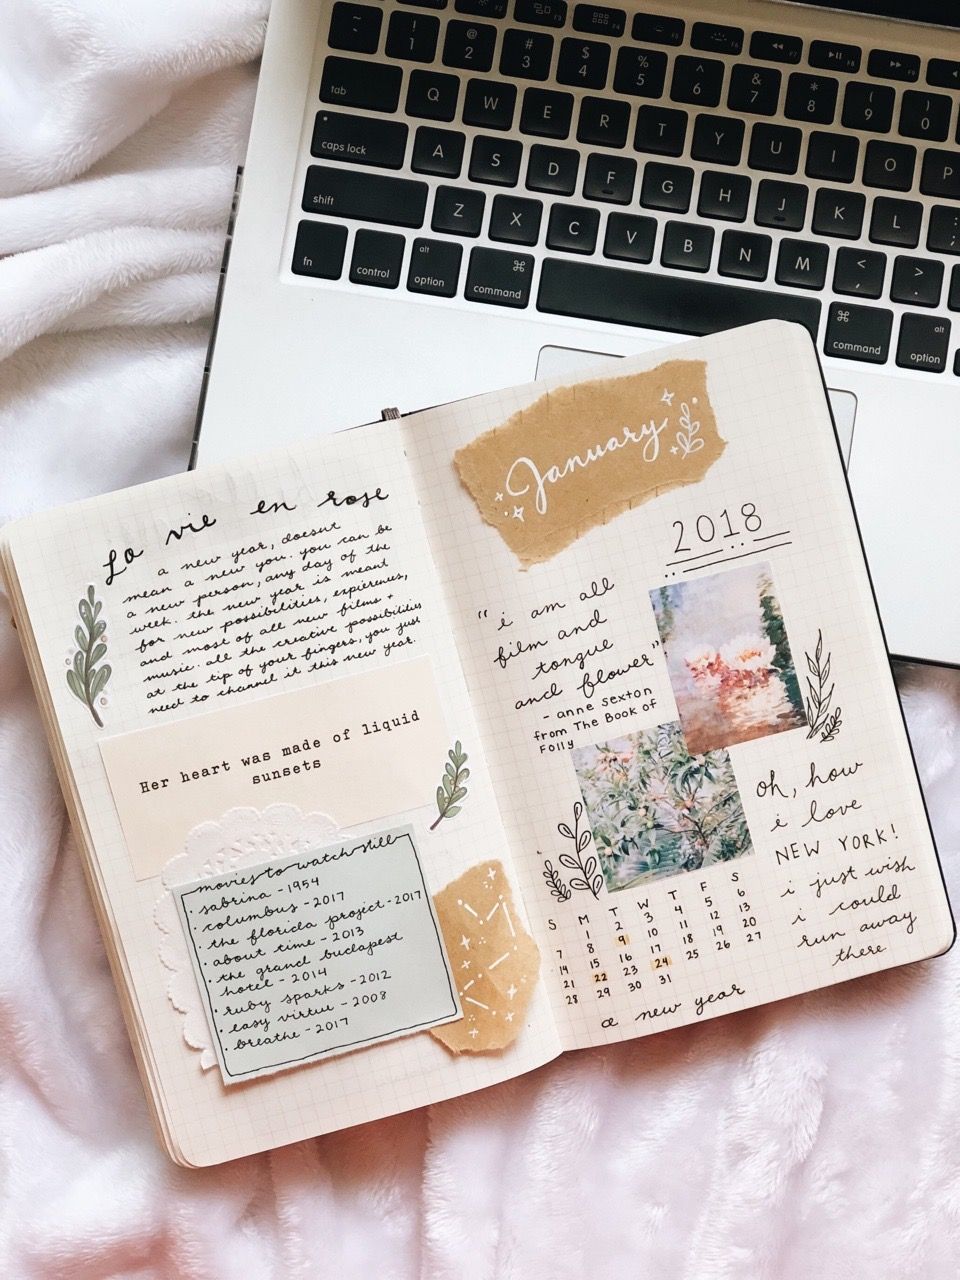 ~
`
!
1
@
2
#
3
$
4
%
5
^
6
&
7
*
8
(
9
)
0
F3
F4
F5
F6
F7
F8
F9
tab
Q
W
E
R
T
Y
U
I
O
P
caps lock
A
S
D
F
G
H
J
K
L
:
;
shift
Z
X
C
V
B
N
M
<
,
>
.
fn
control
alt
option
⌘
command
⌘
command
alt
option
La vie en rose
a new year, doesnt
mean a new you. you can be
a new person, any day of the
week. the new year is meant
for new possibilities, expierences,
and most of all new films +
music. all the creative possibilities
at the tip of your fingers, you just
need to channel it this new year.
Her heart was made of liquid
sunsets
movies to watch still
· sabrina - 1954
· columbus - 2017
· the florida project - 2017
· about time - 2013
· the grand budapest
hotel - 2014
· ruby sparks - 2012
· easy virtue - 2008
· breathe - 2017
January
2018
"i am all
film and
tongue
and flower"
- anne sexton
from The Book of
Folly
oh, how
i love
NEW YORK!
i just wish
i could
run away
there
S M T W T F S
1 2 3 4 5 6
7 8 9 10 11 12 13
14 15 16 17 18 19 20
21 22 23 24 25 26 27
28 29 30 31
a new year